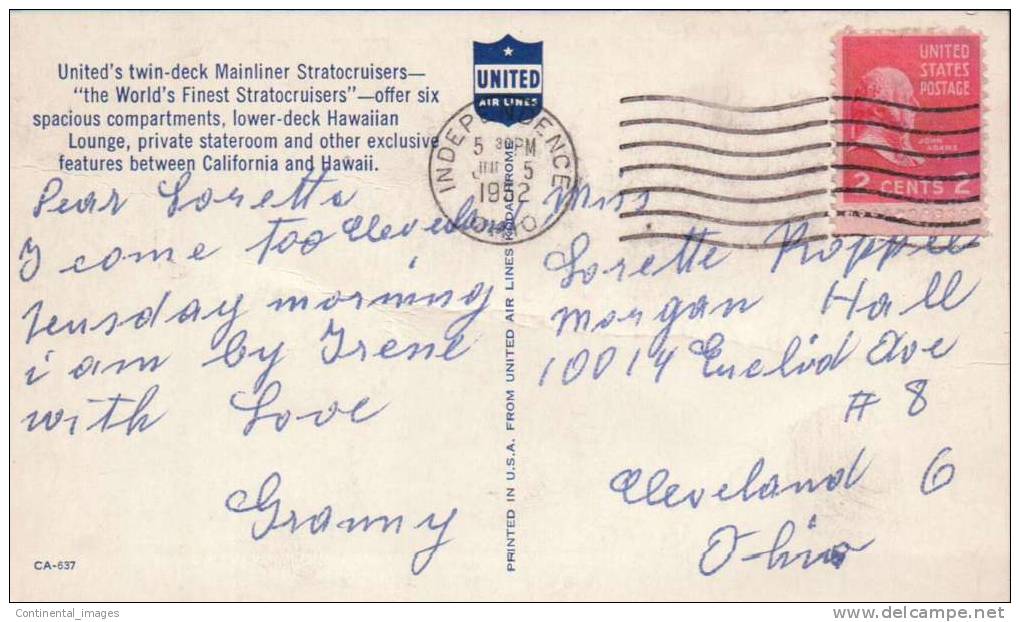 United's twin-deck Mainliner Stratocruisers—
"the World's Finest Stratocruisers"—offer six
spacious compartments, lower-deck Hawaiian
Lounge, private stateroom and other exclusive
features between California and Hawaii.
UNITED
AIR LINES
INDEPENDENCE
5 30 PM
5
1952
OHIO
UNITED
STATES
POSTAGE
JOHN
ADAMS
2 CENTS 2
Dear Loretta
I come too Cleveland
teusday morning
i am by Irene
with Love
Granny
PRINTED IN U.S.A. FROM UNITED AIR LINES KODACHROME
Miss
Lorette
Morgan Hall
10014 Euclid Ave
# 8
Cleveland 6
Ohio
CA-637
Continental_images
delcampe.net